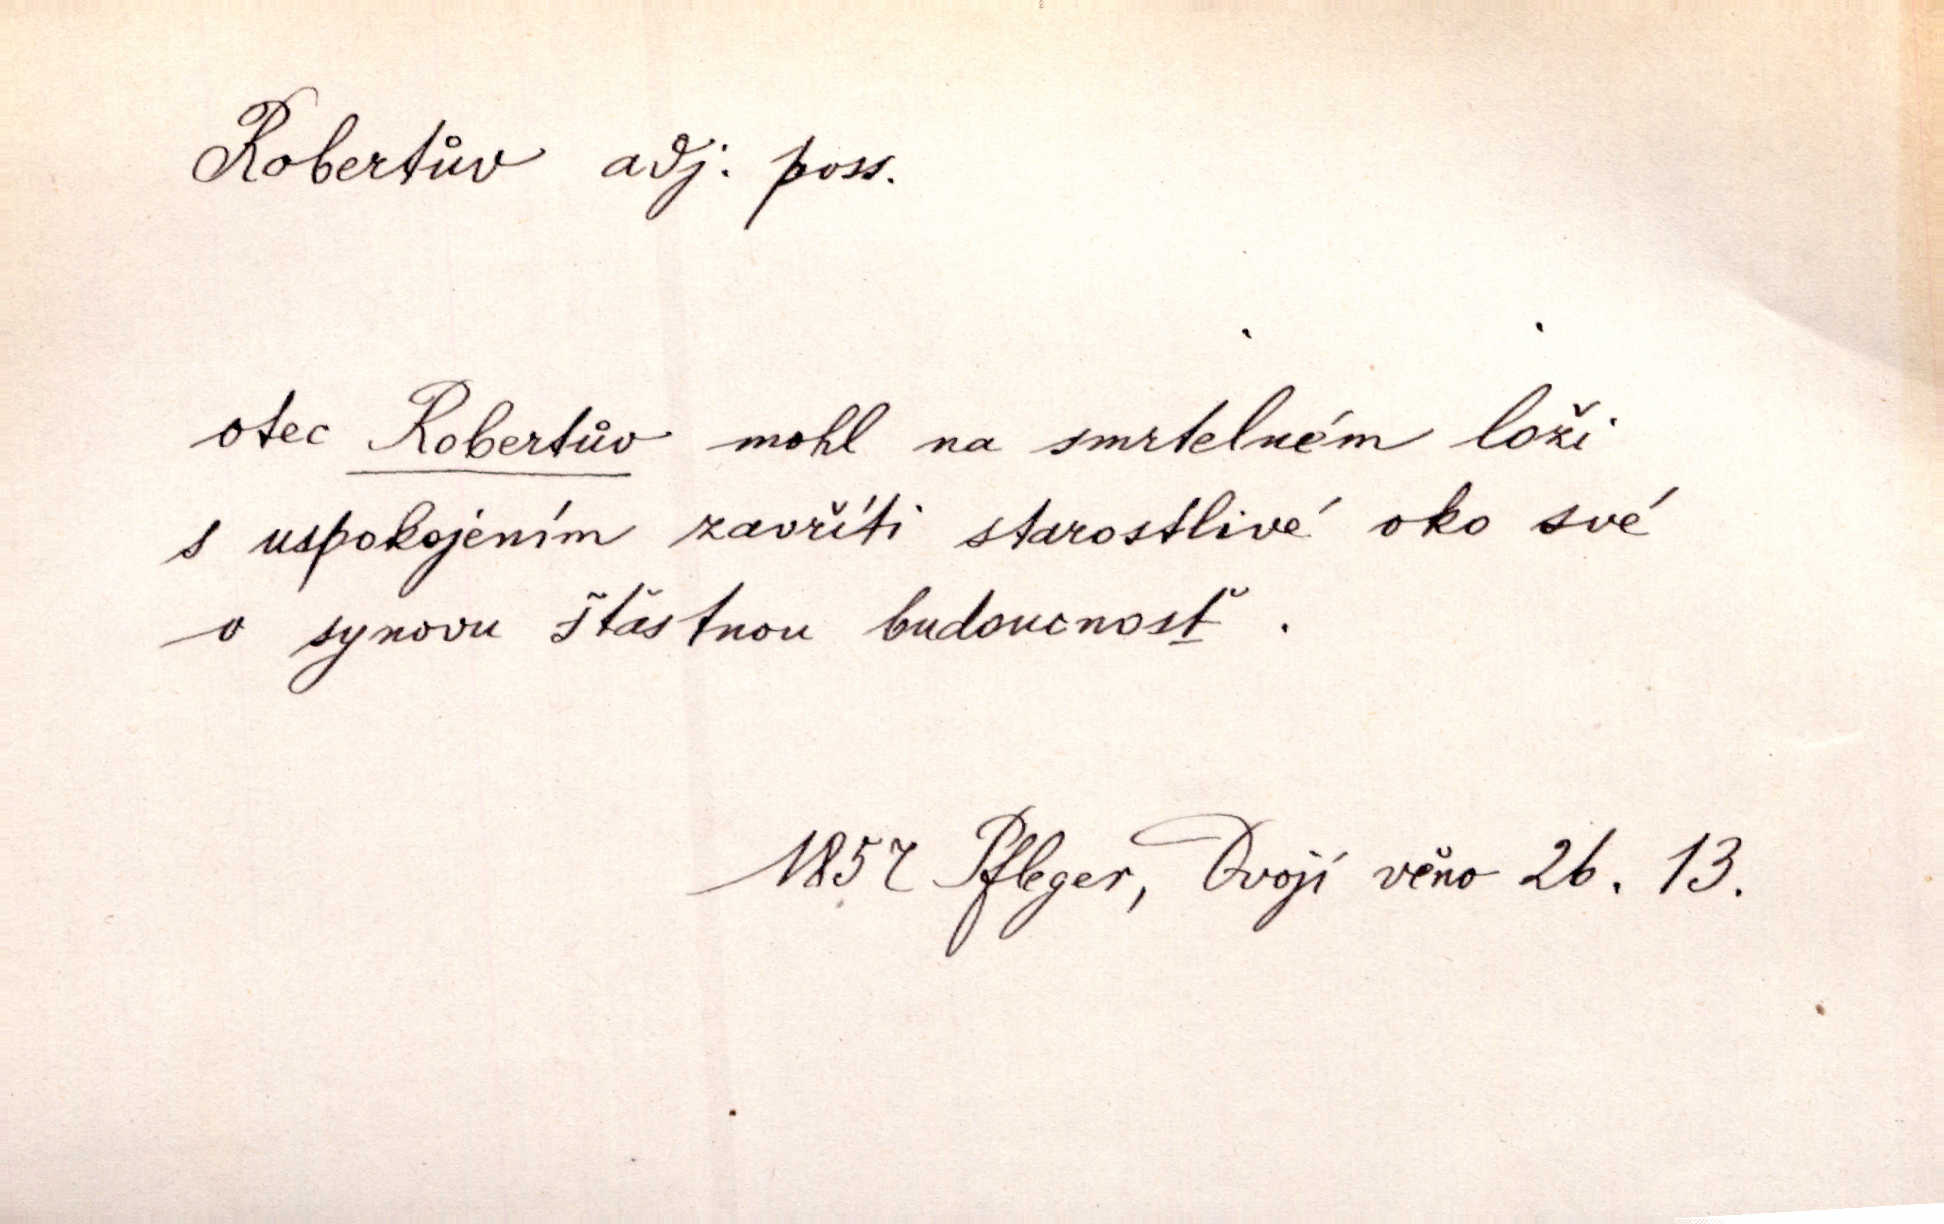 Robertův adj. poss.
otec Robertův mohl na smrtelném loži
s uspokojením zavříti starostlivé oko své
o synovu šťastnou budoucnosť.
1857 Pfleger, Dvojí věno 26. 13.